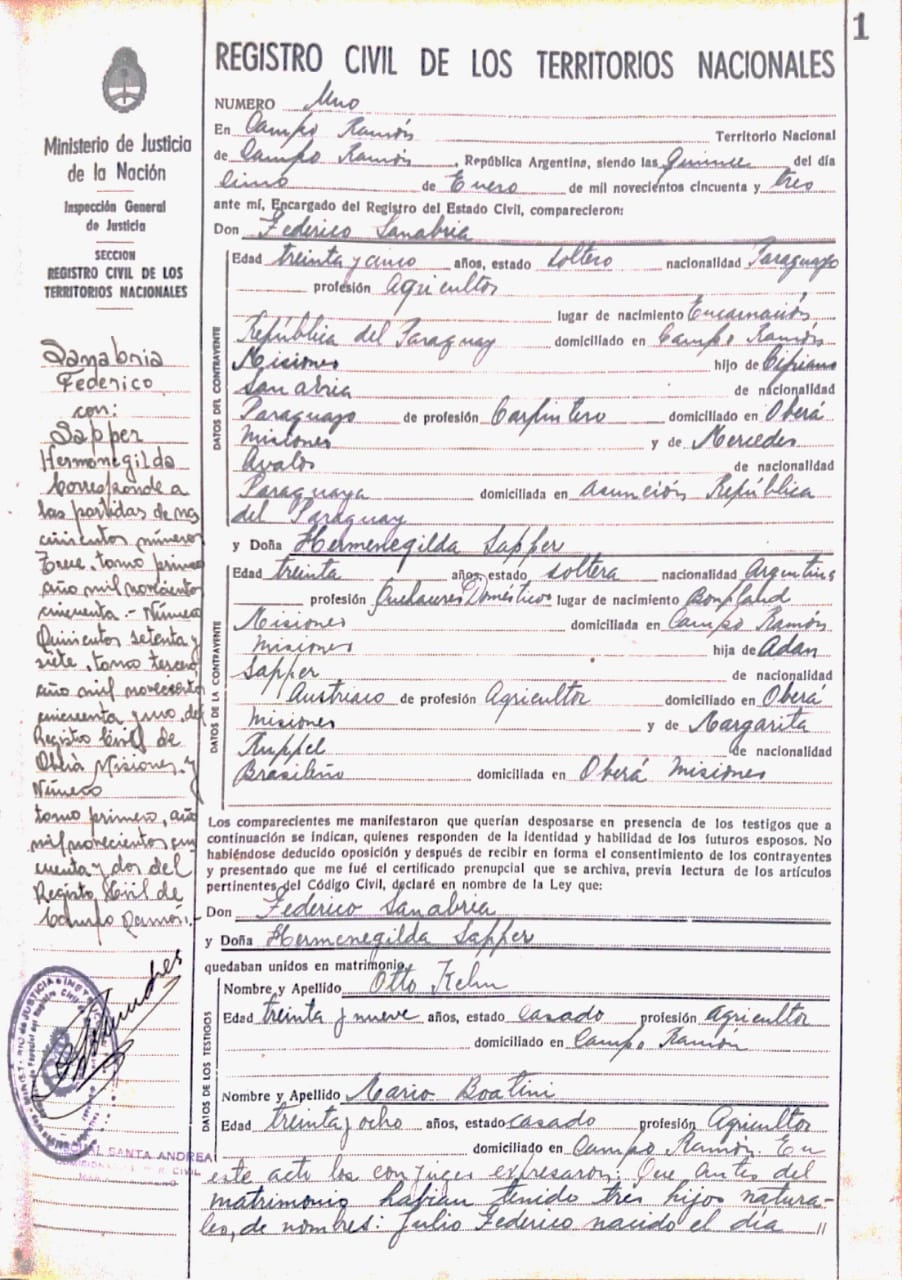 1
REGISTRO CIVIL DE LOS TERRITORIOS NACIONALES
Ministerio de Justicia
de la Nación
Inspección General
de Justicia
SECCION
REGISTRO CIVIL DE LOS
TERRITORIOS NACIONALES
Sanabria
Federico
con:
Sapper
Hermenegilda
Corresponde a
las partidas de na
cimientos número
Trece, tomo primero
año mil novecientos
cincuenta.- Número
Quinientos setenta y
siete, tomo tercero
año mil novecientos
cincuenta y uno, del
Registro Civil de
Oberá Misiones. y
Número
tomo primero, año
mil novecientos cin
cuenta y dos del
Registro Civil de
Campo Ramón.-
SANTA ANDREA
NUMERO Uno
En Campo Ramón Territorio Nacional
de Campo Ramón, República Argentina, siendo las Quince del día
de Enero de mil novecientos cincuenta y tres
ante mí, Encargado del Registro del Estado Civil, comparecieron:
Don Federico Sanabria
DATOS DEL CONTRAYENTE
Edad treinta y cinco años, estado soltero nacionalidad Paraguayo
profesión Agricultor
lugar de nacimiento Encarnación
República del Paraguay domiciliado en Campo Ramón
Misiones hijo de Cipriano
Sanabria de nacionalidad
Paraguayo de profesión Carpintero domiciliado en Oberá
Misiones y de Mercedes
Avalos de nacionalidad
Paraguaya domiciliada en Asunción República
del Paraguay
y Doña Hermenegilda Sapper
DATOS DE LA CONTRAYENTE
Edad treinta años, estado soltera nacionalidad Argentina
profesión Quehaceres Domésticos lugar de nacimiento Bonpland
Misiones domiciliada en Campo Ramón
Misiones hija de Adan
Sapper de nacionalidad
Austriaco de profesión Agricultor domiciliado en Oberá
Misiones y de Margarita
Ruppel de nacionalidad
Brasileña domiciliada en Oberá Misiones
Los comparecientes me manifestaron que querían desposarse en presencia de los testigos que a
continuación se indican, quienes responden de la identidad y habilidad de los futuros esposos. No
habiéndose deducido oposición y después de recibir en forma el consentimiento de los contrayentes
y presentado que me fué el certificado prenupcial que se archiva, previa lectura de los artículos
pertinentes del Código Civil, declaré en nombre de la Ley que:
Don Federico Sanabria
y Doña Hermenegilda Sapper
quedaban unidos en matrimonio,
DATOS DE LOS TESTIGOS
Nombre y Apellido Otto Kehn
Edad treinta y nueve años, estado casado profesión Agricultor
domiciliado en Campo Ramón
Nombre y Apellido Mario Boatini
Edad treinta y ocho años, estado casado profesión Agricultor
domiciliado en Campo Ramón. En
este acto los conjuges expresaron: Que antes del
matrimonio habian tenido tres hijos natura-
les, de nombres: Julio Federico nacido el día //